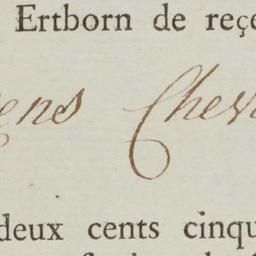 Ertborn de reçe
ens Chev
deux cents cinqu